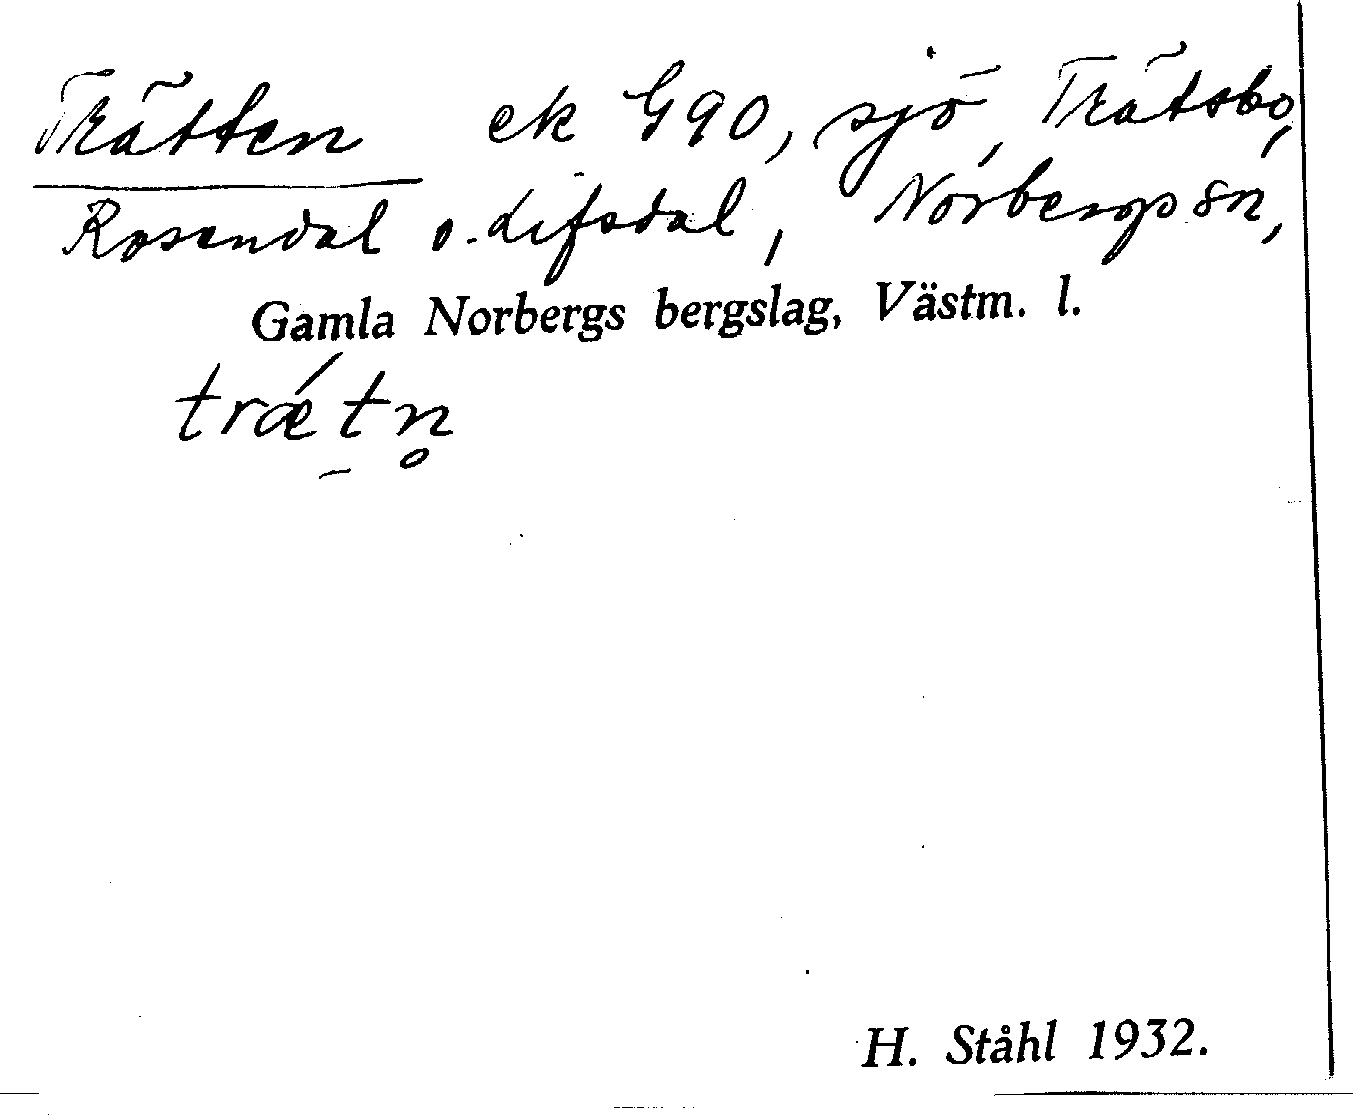 Trätten ek G90, sjö, Trätsbo,
Rosendal o. Lifsdal, Norbergs sn,
Gamla Norbergs bergslag, Västm. l.
træ´t̠n̥
H. Ståhl 1932.